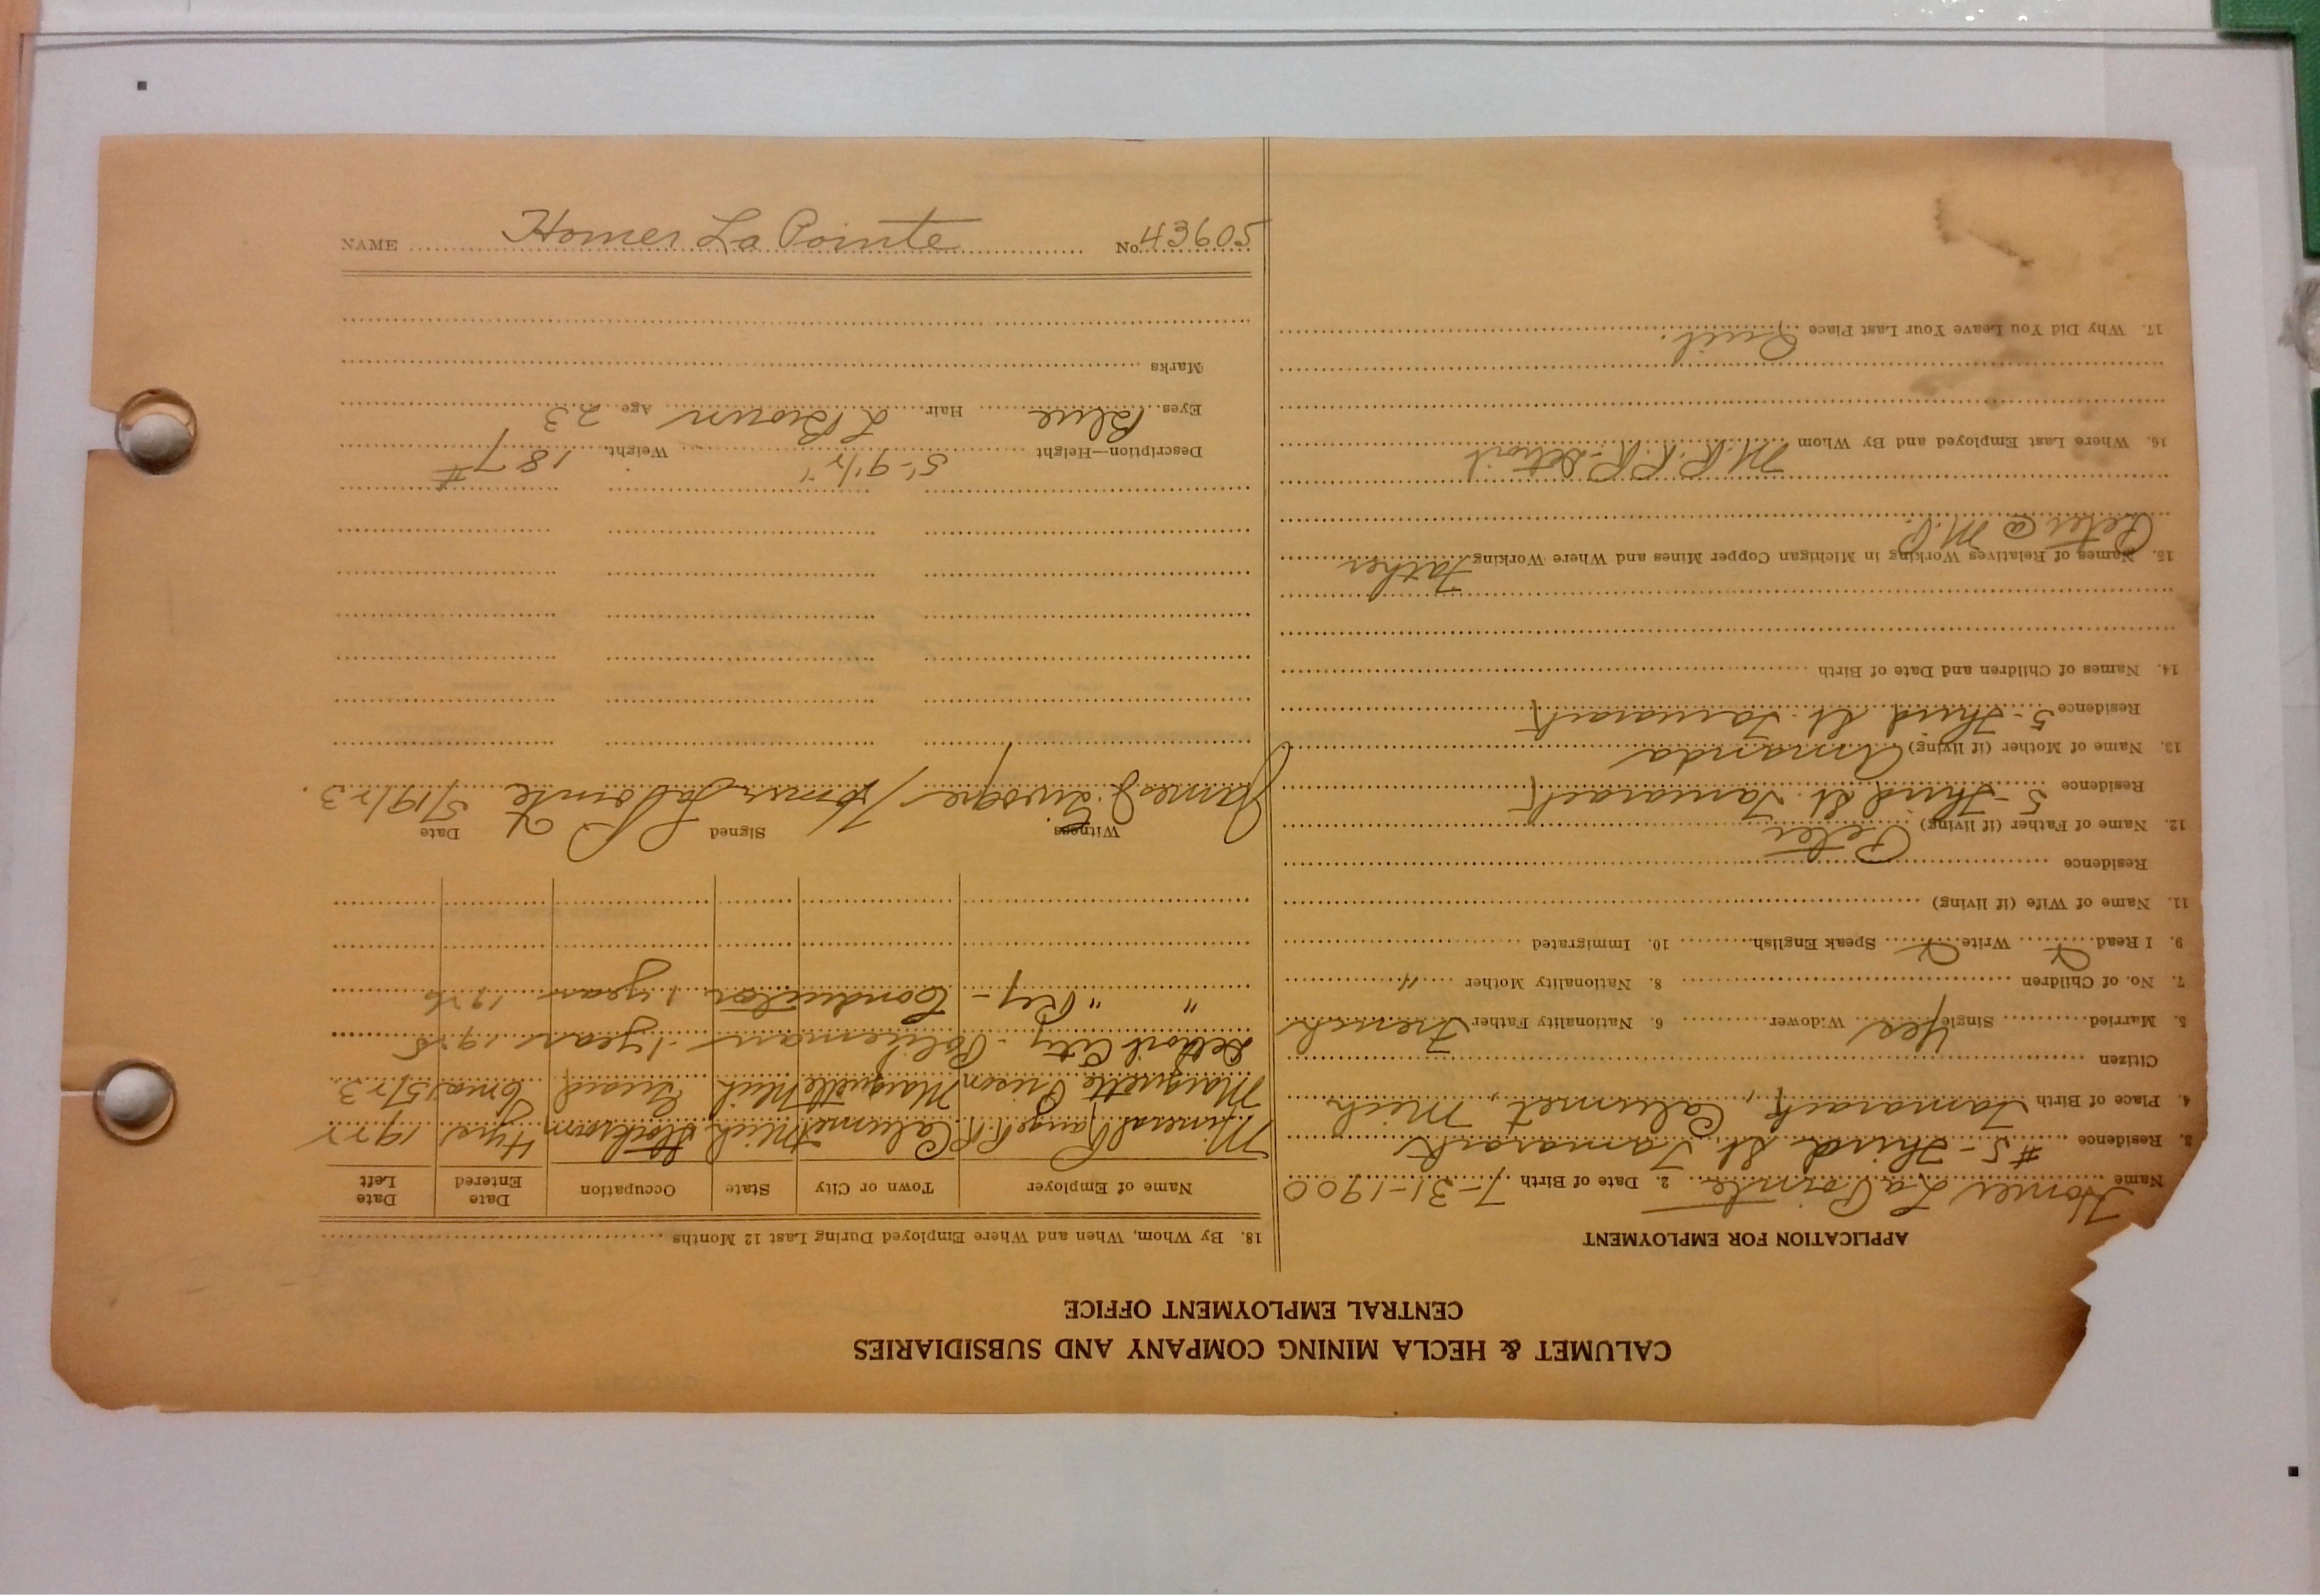 CALUMET & HECLA MINING COMPANY AND SUBSIDIARIES
CENTRAL EMPLOYMENT OFFICE
APPLICATION FOR EMPLOYMENT
Name Homer La Pointe 2. Date of Birth 7-31-1900
3. Residence #5-Third St Tamarack
4. Place of Birth Tamarack, Calumet, Mich
Citizen
5. Married Single Yes Widower 6. Nationality Father French
7. No. of Children 8. Nationality Mother "
9. I Read Write Speak English 10. Immigrated
11. Name of Wife (if living)
Residence
12. Name of Father (if living) Peter
Residence 5-Third St. Tamarack
13. Name of Mother (if living) Amanda
Residence 5-Third St. Tamarack
14. Names of Children and Date of Birth
15. Names of Relatives Working in Michigan Copper Mines and Where Working Father
Peter @ M.R.
16. Where Last Employed and By Whom M.R.R.R-Detroit
17. Why Did You Leave Your Last Place Quit.
18. By Whom, When and Where Employed During Last 12 Months
Name of Employer Town or City State Occupation Date Entered Date Left
Mineral Range R.R Calumet Mich 4 yrs 1922
Marquette Prison Marquette Mich Guard 6 mos 5/23
Detroit City- Policeman-1 year 1925
" " Rey- Conductor 1 year 1926
Witness Signed Date
James J. Homer La Pointe 5/19/23.
Description—Height 5'-9½" Weight 187#
Eyes Blue Hair L Brown Age 23
Marks
NAME Homer La Pointe No. 43605